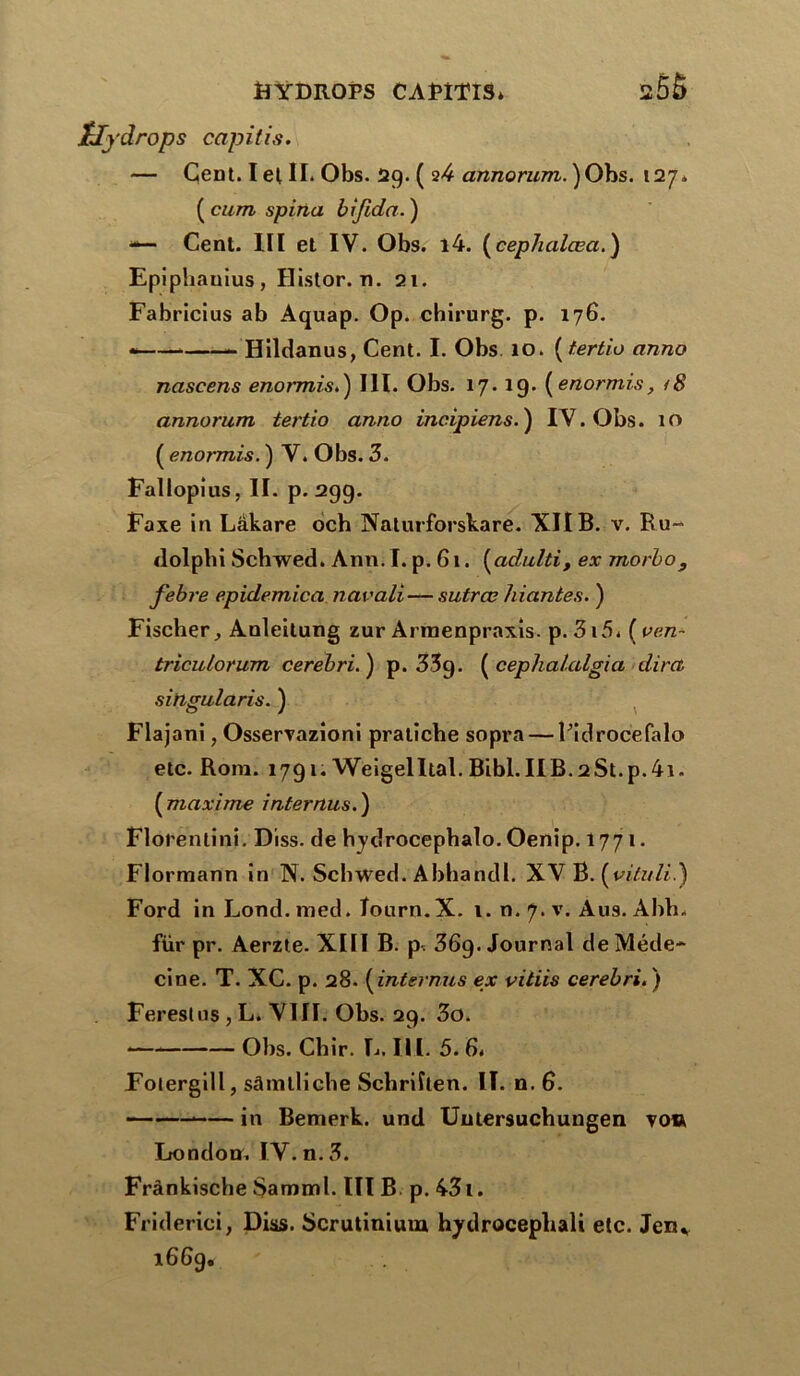 HYDROPS CAPITIS. 255
Hydrops capitis.
— Cent. I et II. Obs. 29. ( 24 annorum. ) Obs. 127.
( cum spina bifida. )
— Cent. III et IV. Obs. 14. (cephalæa.)
Epiphanius, Histor. n. 21.
Fabricius ab Aquap. Op. chirurg. p. 176.
——— Hildanus, Cent. I. Obs. 10. (tertio anno
nascens enormis.) III. Obs. 17. 19. (enormis, 18
annorum tertio anno incipiens.) IV. Obs. 10
( enormis. ) V. Obs. 3.
Fallopius, II. p. 299.
Faxe in Läkare och Naturforskare. XII B. v. Ru-
dolphi Schwed. Ann. I. p. 61. (adulti, ex morbo,
febre epidemica navali — suturæ hiantes. )
Fischer, Anleitung zur Armenpraxis. p. 315. (ven-
triculorum cerebri. ) p. 339. ( cephalalgia dira
singularis. )
Flajani, Osservazioni pratiche sopra — l'idrocefalo
etc. Rom. 1791. Weigel Ital. Bibl. II B. 2 St. p. 41.
(maxime internus.)
Florentini. Diss. de hydrocephalo. Oenip. 1771.
Flormann in N. Schwed. Abhandl. XV B. (vituli.)
Ford in Lond. med. Iourn. X. 1. n. 7. v. Aus. Abh.
für pr. Aerzte. XIII B. p. 369. Journal de Méde-
cine. T. XC. p. 28. (internus ex vitiis cerebri.)
Forestus, L. VIII. Obs. 29. 30.
——— Obs. Chir. L. III. 5. 6.
Fotergill, sämtliche Schriften. II. n. 6.
——— in Bemerk. und Untersuchungen von
London. IV. n. 3.
Fränkische Samml. III B. p. 431.
Friderici, Diss. Scrutinium hydrocephali etc. Jen.
1669.